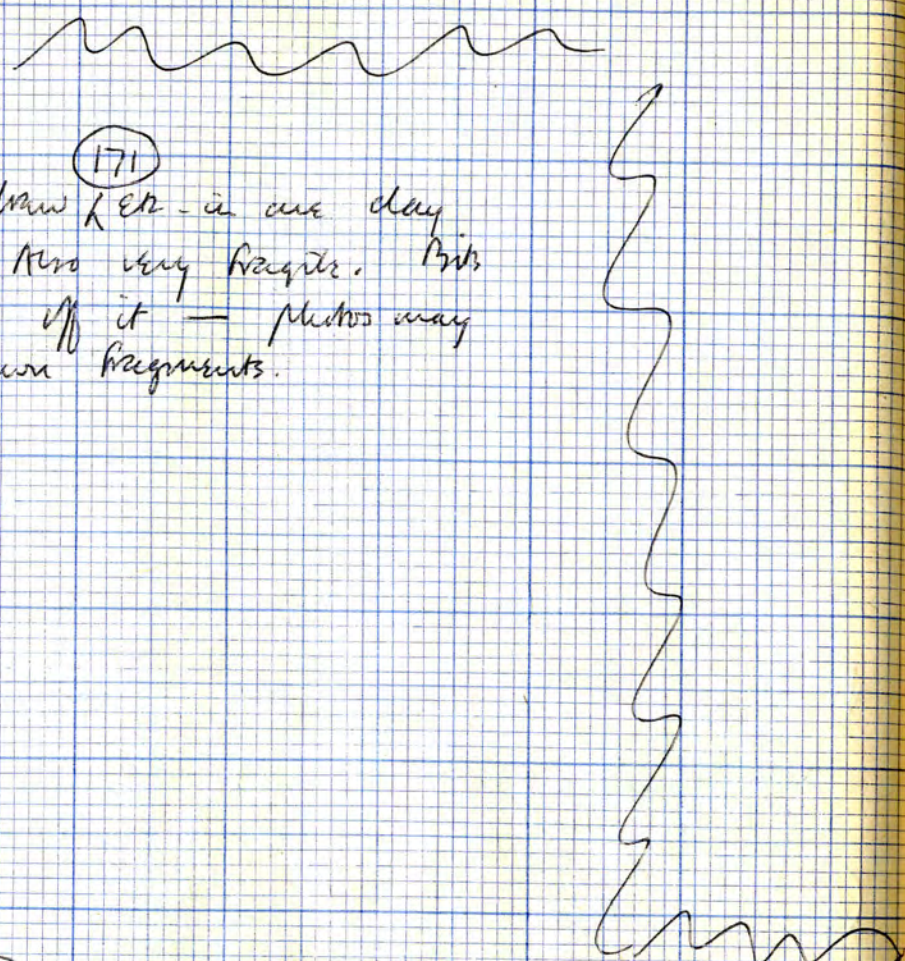 171
in one day
Also very fragile. Bits
off it — photos may
fragments.